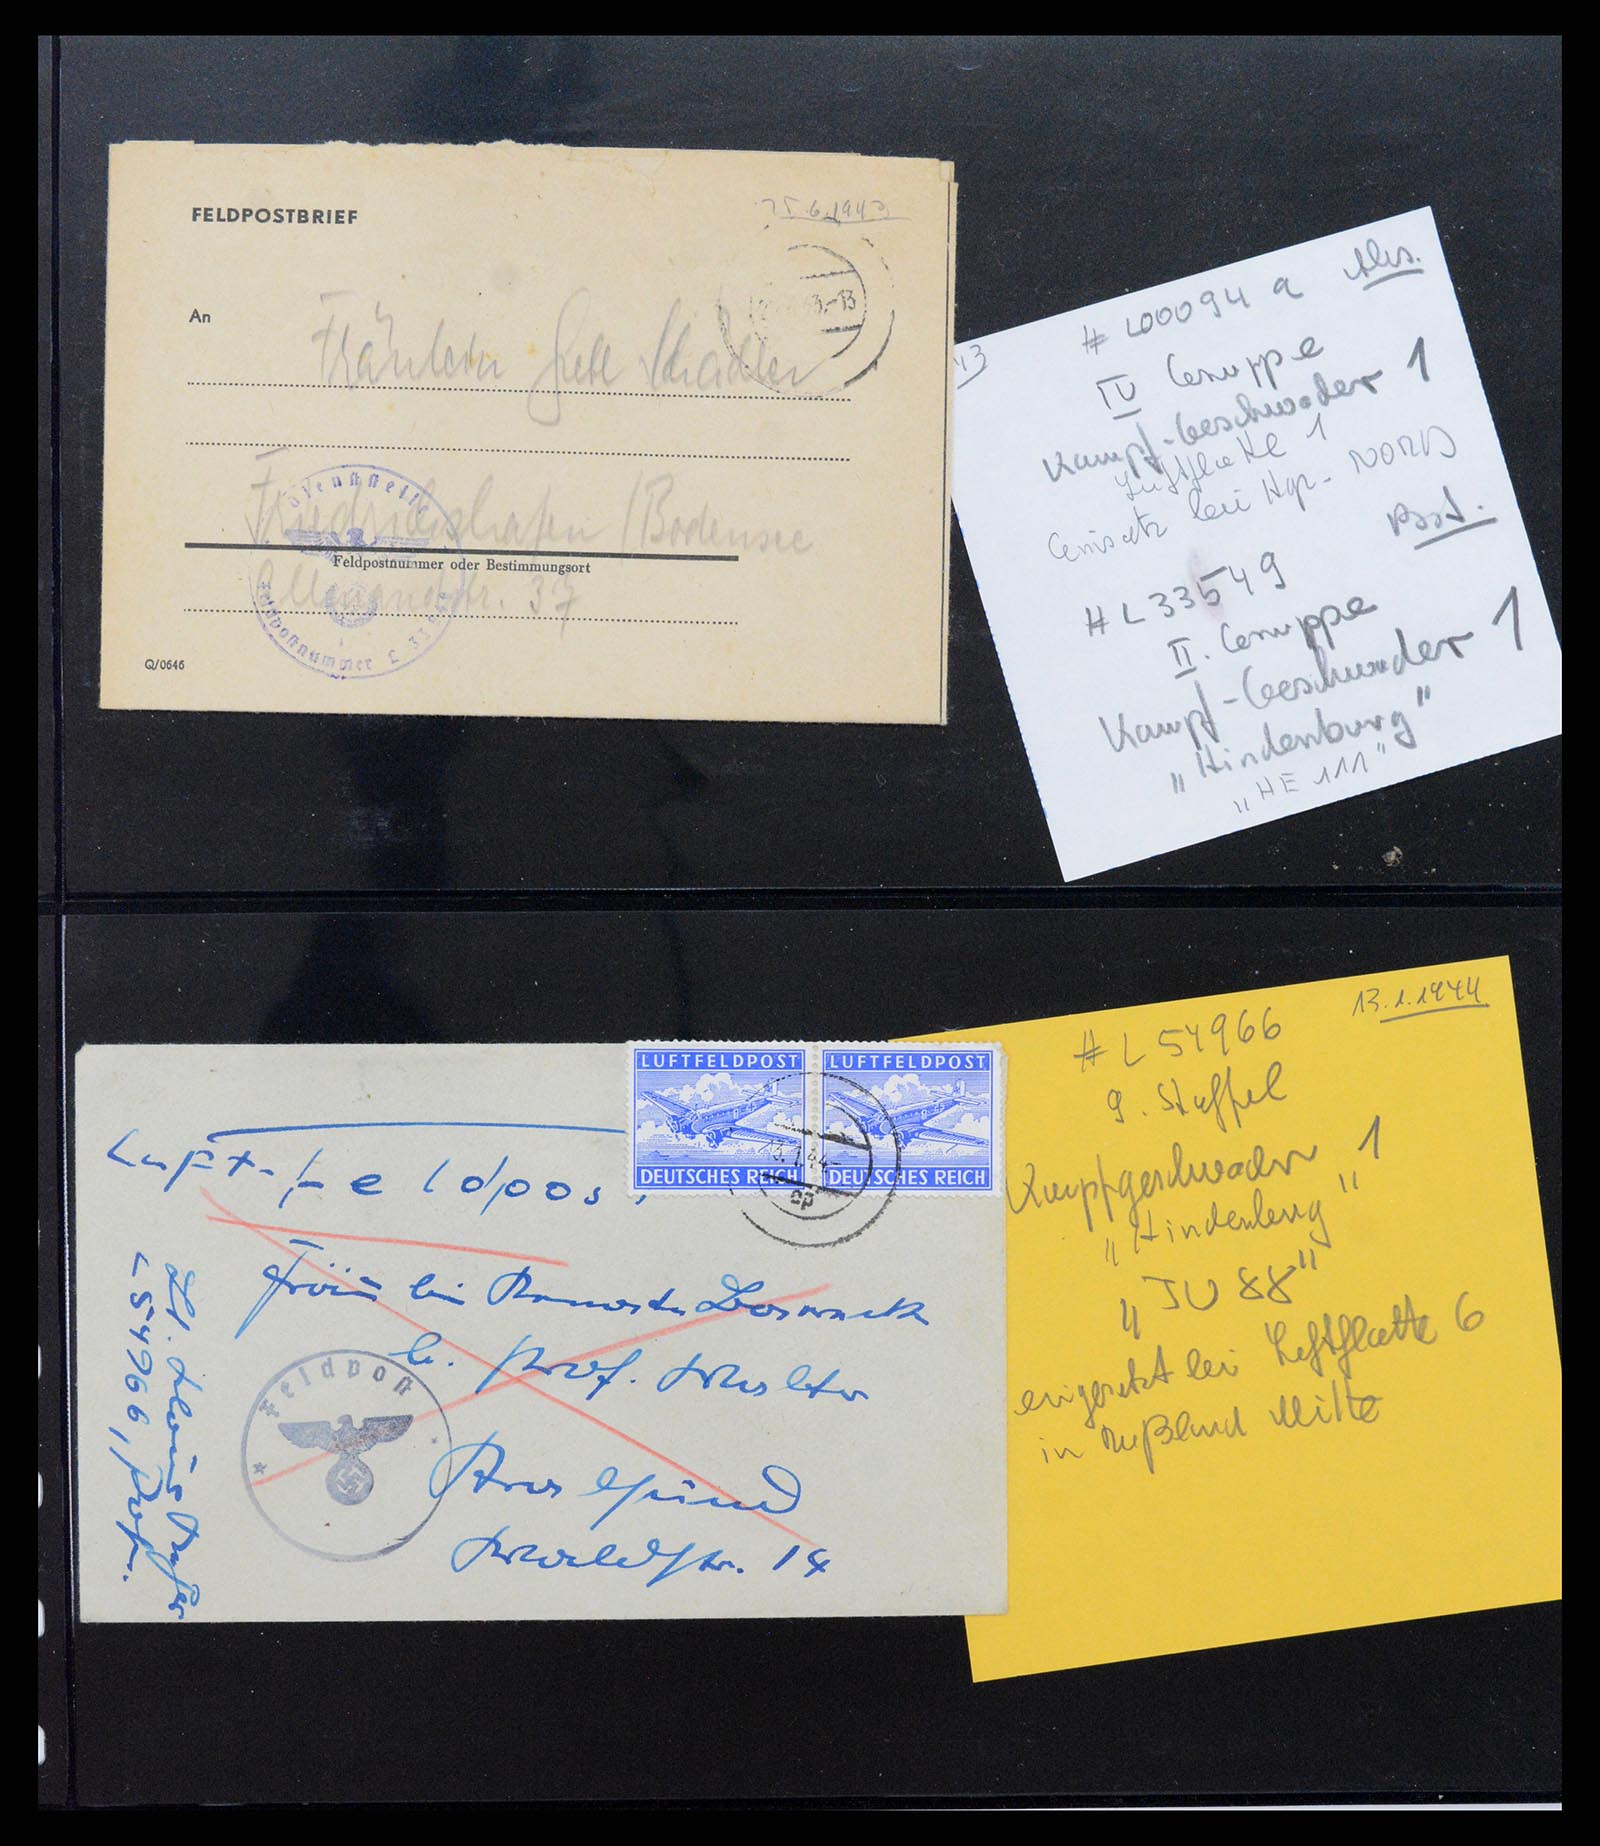 FELDPOSTBRIEF
25.6.1943
An
Fräulein
Friedrichshafen / Bodensee
Feldpostnummer oder Bestimmungsort
str. 37
Dienststelle
Feldpostnummer L 33549
Q/0646
43
# L00094 a Abs.
IV Gruppe
Kampf-Geschwader 1
Luftflotte 1
Einsatz bei Hgr. NORD
Post.
# L33549
II. Gruppe
Kampf-Geschwader 1
„Hindenburg"
„HE 111"
LUFTFELDPOST
DEUTSCHES REICH
LUFTFELDPOST
DEUTSCHES REICH
13.1.44
Luft-Feldpost
b. Prof.
str. 14
Feldpost
L 54966,
13.1.1944
# L 54966
9. Staffel
Kampfgeschwader 1
„Hindenburg"
„JU 88"
eingesetzt bei Luftflotte 6
in Rußland Mitte